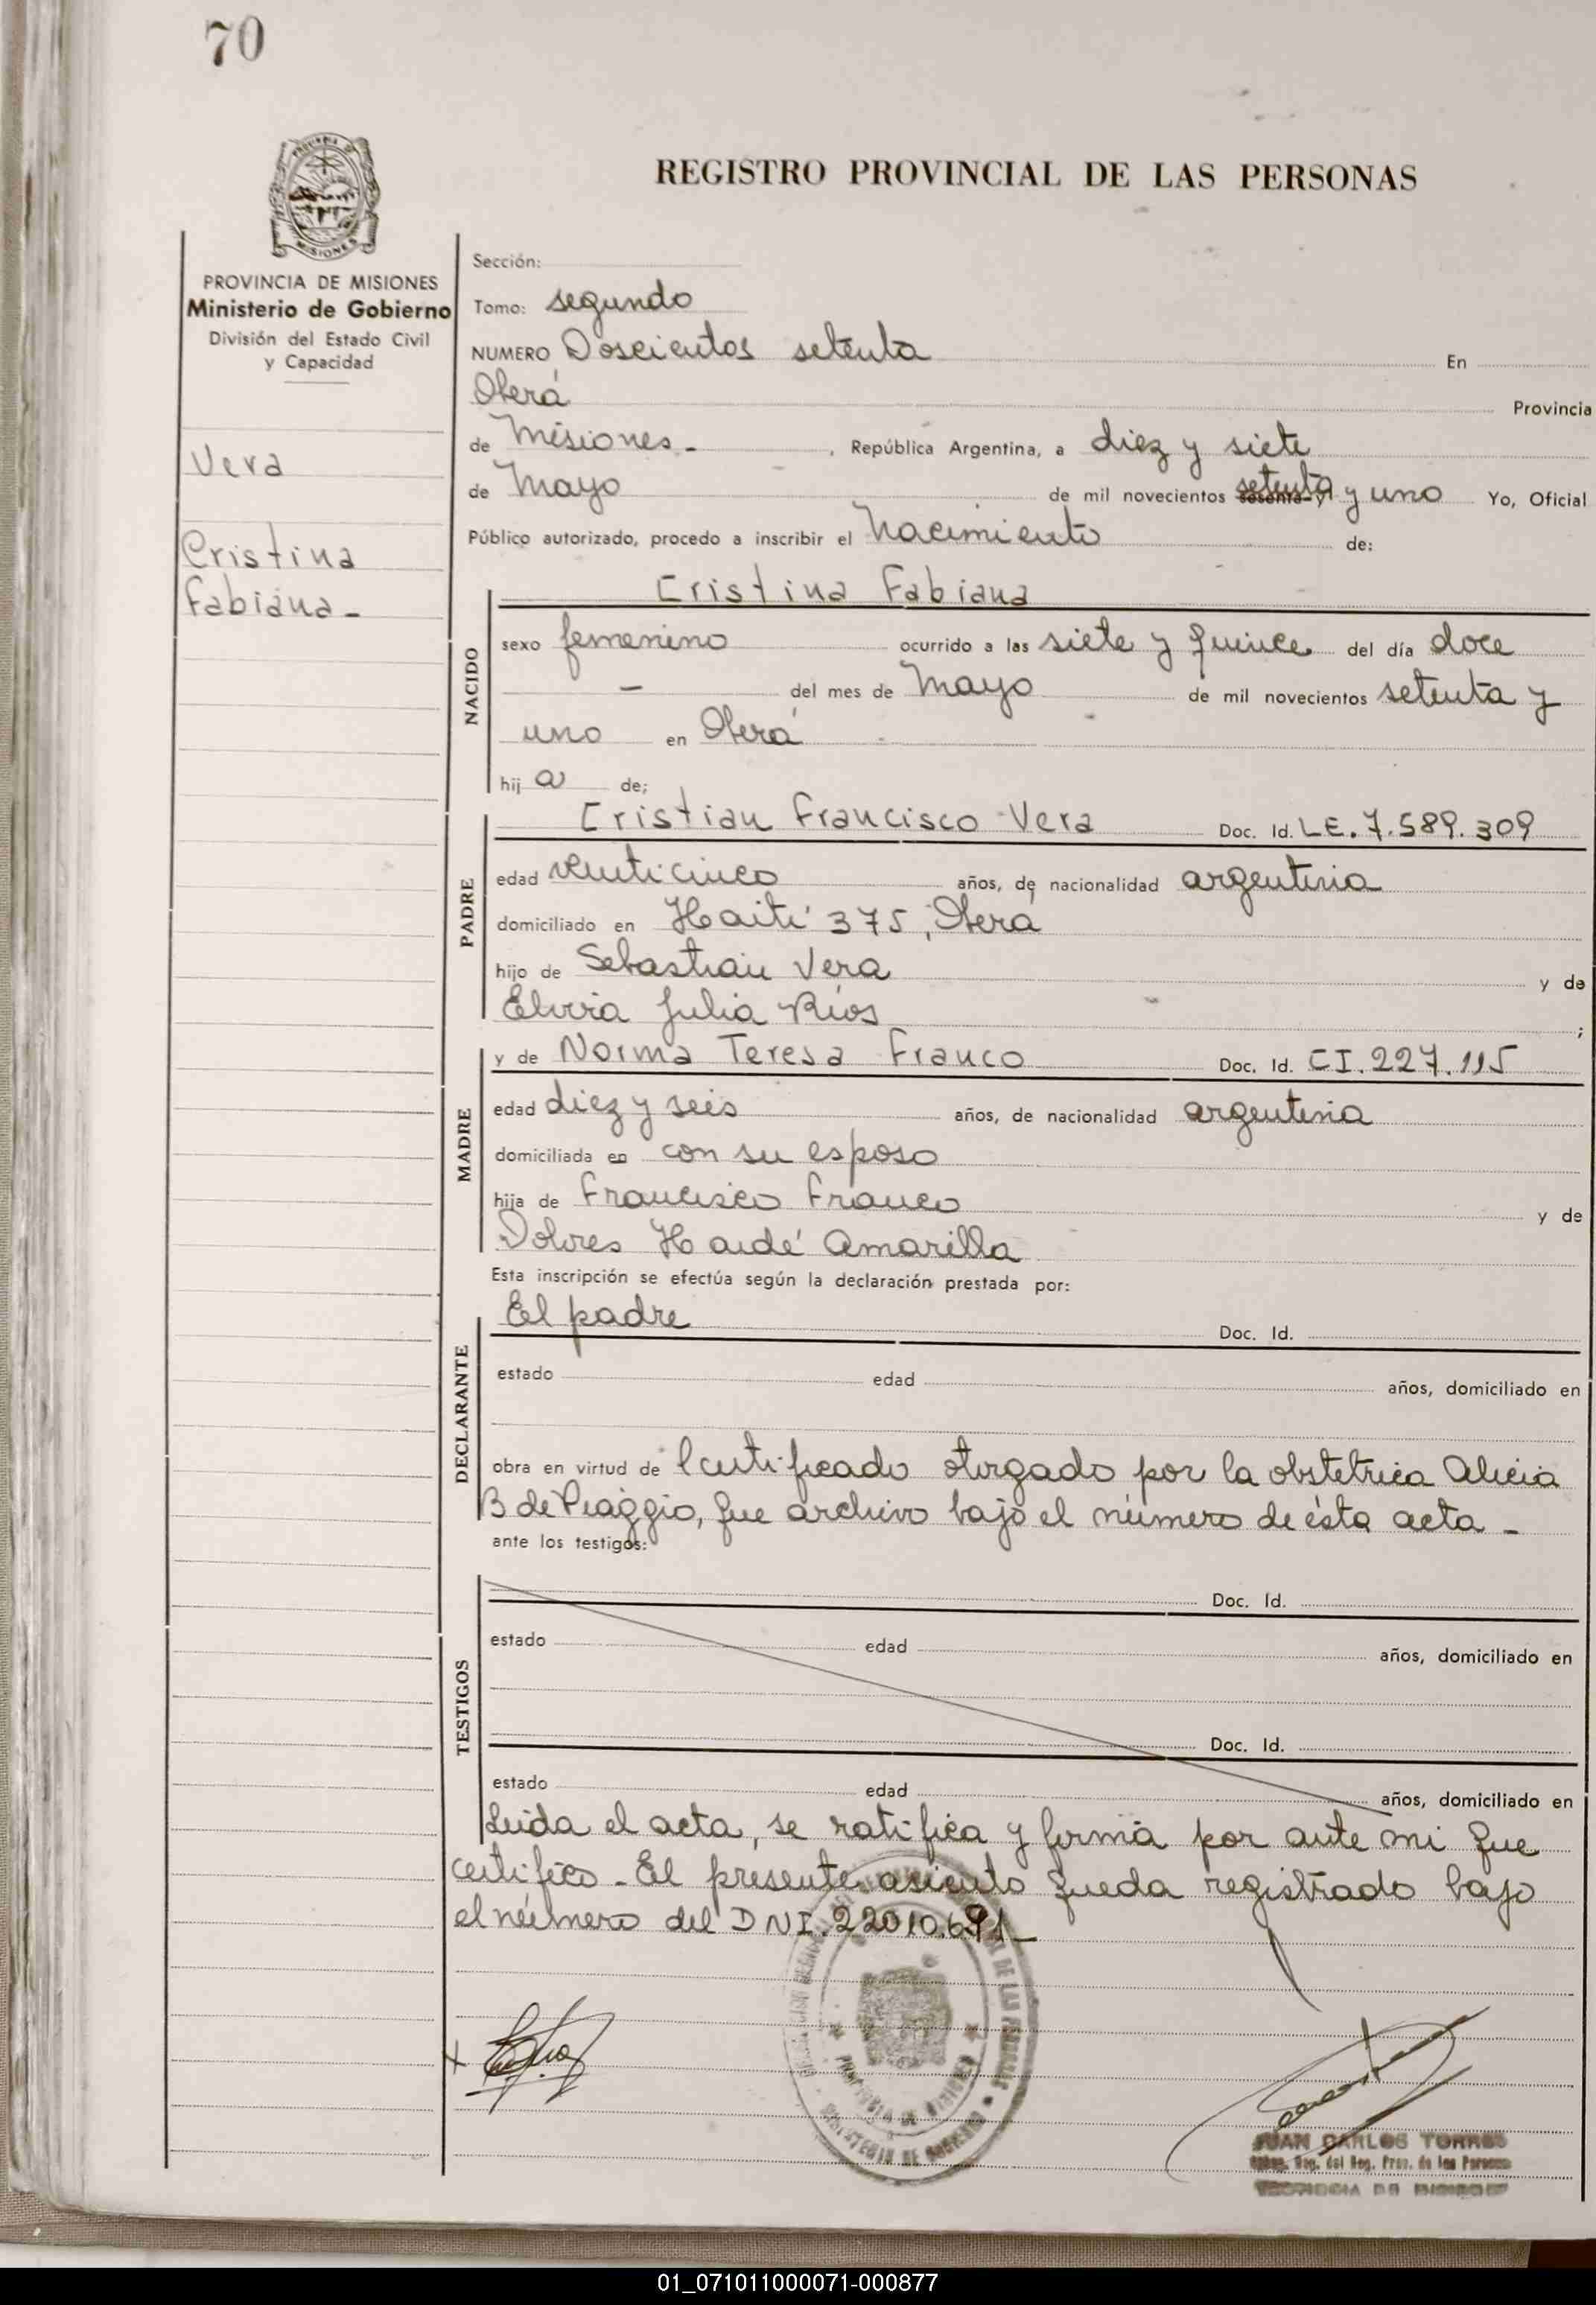 70
REGISTRO PROVINCIAL DE LAS PERSONAS
PROVINCIA DE MISIONES
Ministerio de Gobierno
División del Estado Civil
y Capacidad
Vera
Cristina
Fabiana -
Sección:
Tomo: segundo
NUMERO Doscientos setenta En
Oberá Provincia
de Misiones - , República Argentina, a diez y siete
de Mayo de mil novecientos setenta y uno Yo, Oficial
Público autorizado, procedo a inscribir el Nacimiento de:
NACIDO
Cristina Fabiana
sexo femenino ocurrido a las siete y quince del día doce
- del mes de Mayo de mil novecientos setenta y
uno en Oberá
hij a de;
PADRE
Cristian Francisco Vera Doc. Id. L.E. 7.589.309
edad veinticinco años, de nacionalidad argentina
domiciliado en Haití 375, Oberá
hijo de Sebastian Vera y de
Elvira Julia Ríos ;
MADRE
y de Norma Teresa Franco Doc. Id. C.I. 227.115
edad diez y seis años, de nacionalidad argentina
domiciliada en con su esposo
hija de Francisco Franco y de
Dolores Haidé Amarilla
Esta inscripción se efectúa según la declaración prestada por:
DECLARANTE
El padre Doc. Id.
estado edad años, domiciliado en
obra en virtud de certificado otorgado por la obstetrica Alicia
B de Piaggio, que archivo bajo el número de ésta acta -
ante los testigos:
TESTIGOS
Doc. Id.
estado edad años, domiciliado en
Doc. Id.
estado edad años, domiciliado en
Leida el acta, se ratifica y firma por ante mi que
certifico - El presente asiento queda registrado bajo
el número del DNI. 22010.691 -
PROVINCIA DE MISIONES
MINISTERIO DE GOBIERNO
JUAN CARLOS TORRES
Reg. del Reg. Prov. de las Personas
PROVINCIA DE MISIONES
01_071011000071-000877